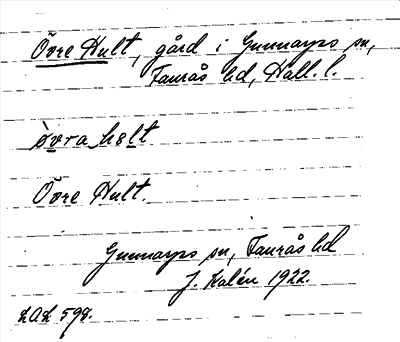 Övre Hult, gård i Gunnarps sn,
Faurås hd, Hall. l.
òvra hølt
Övre Hult.
Gunnarps sn, Faurås hd
J. Kalén 1922.
LAL 598.